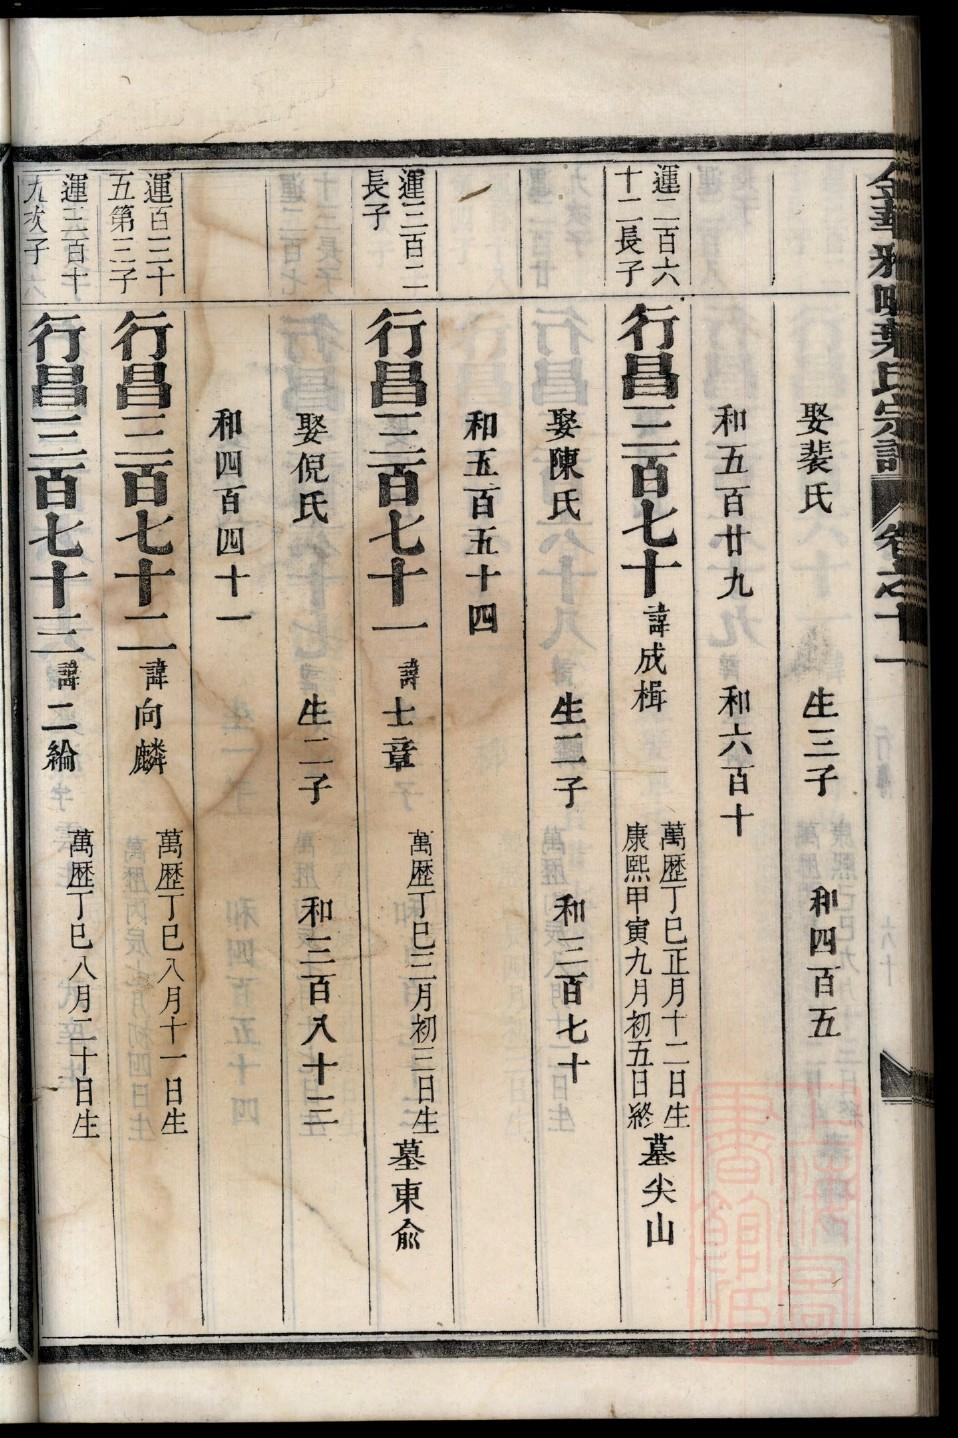 金華雅畈葉氏宗譜 卷之十一
娶裴氏 生三子 和四百五
和五百廿九 和六百十
運二百六十二長子
行昌三百七十 諱成楫 萬歷丁巳正月十二日生 康熙甲寅九月初五日終 墓尖山
娶陳氏 生二子 和三百七十
和五百五十四
運三百二長子
行昌三百七十一 諱士章 萬歷丁巳三月初三日生 墓東俞
娶倪氏 生二子 和三百八十三
和四百四十一
運百三十五第三子
行昌三百七十二 諱向麟 萬歷丁巳八月十一日生
運三百十九次子
行昌三百七十三 諱二綸 萬歷丁巳八月二十日生